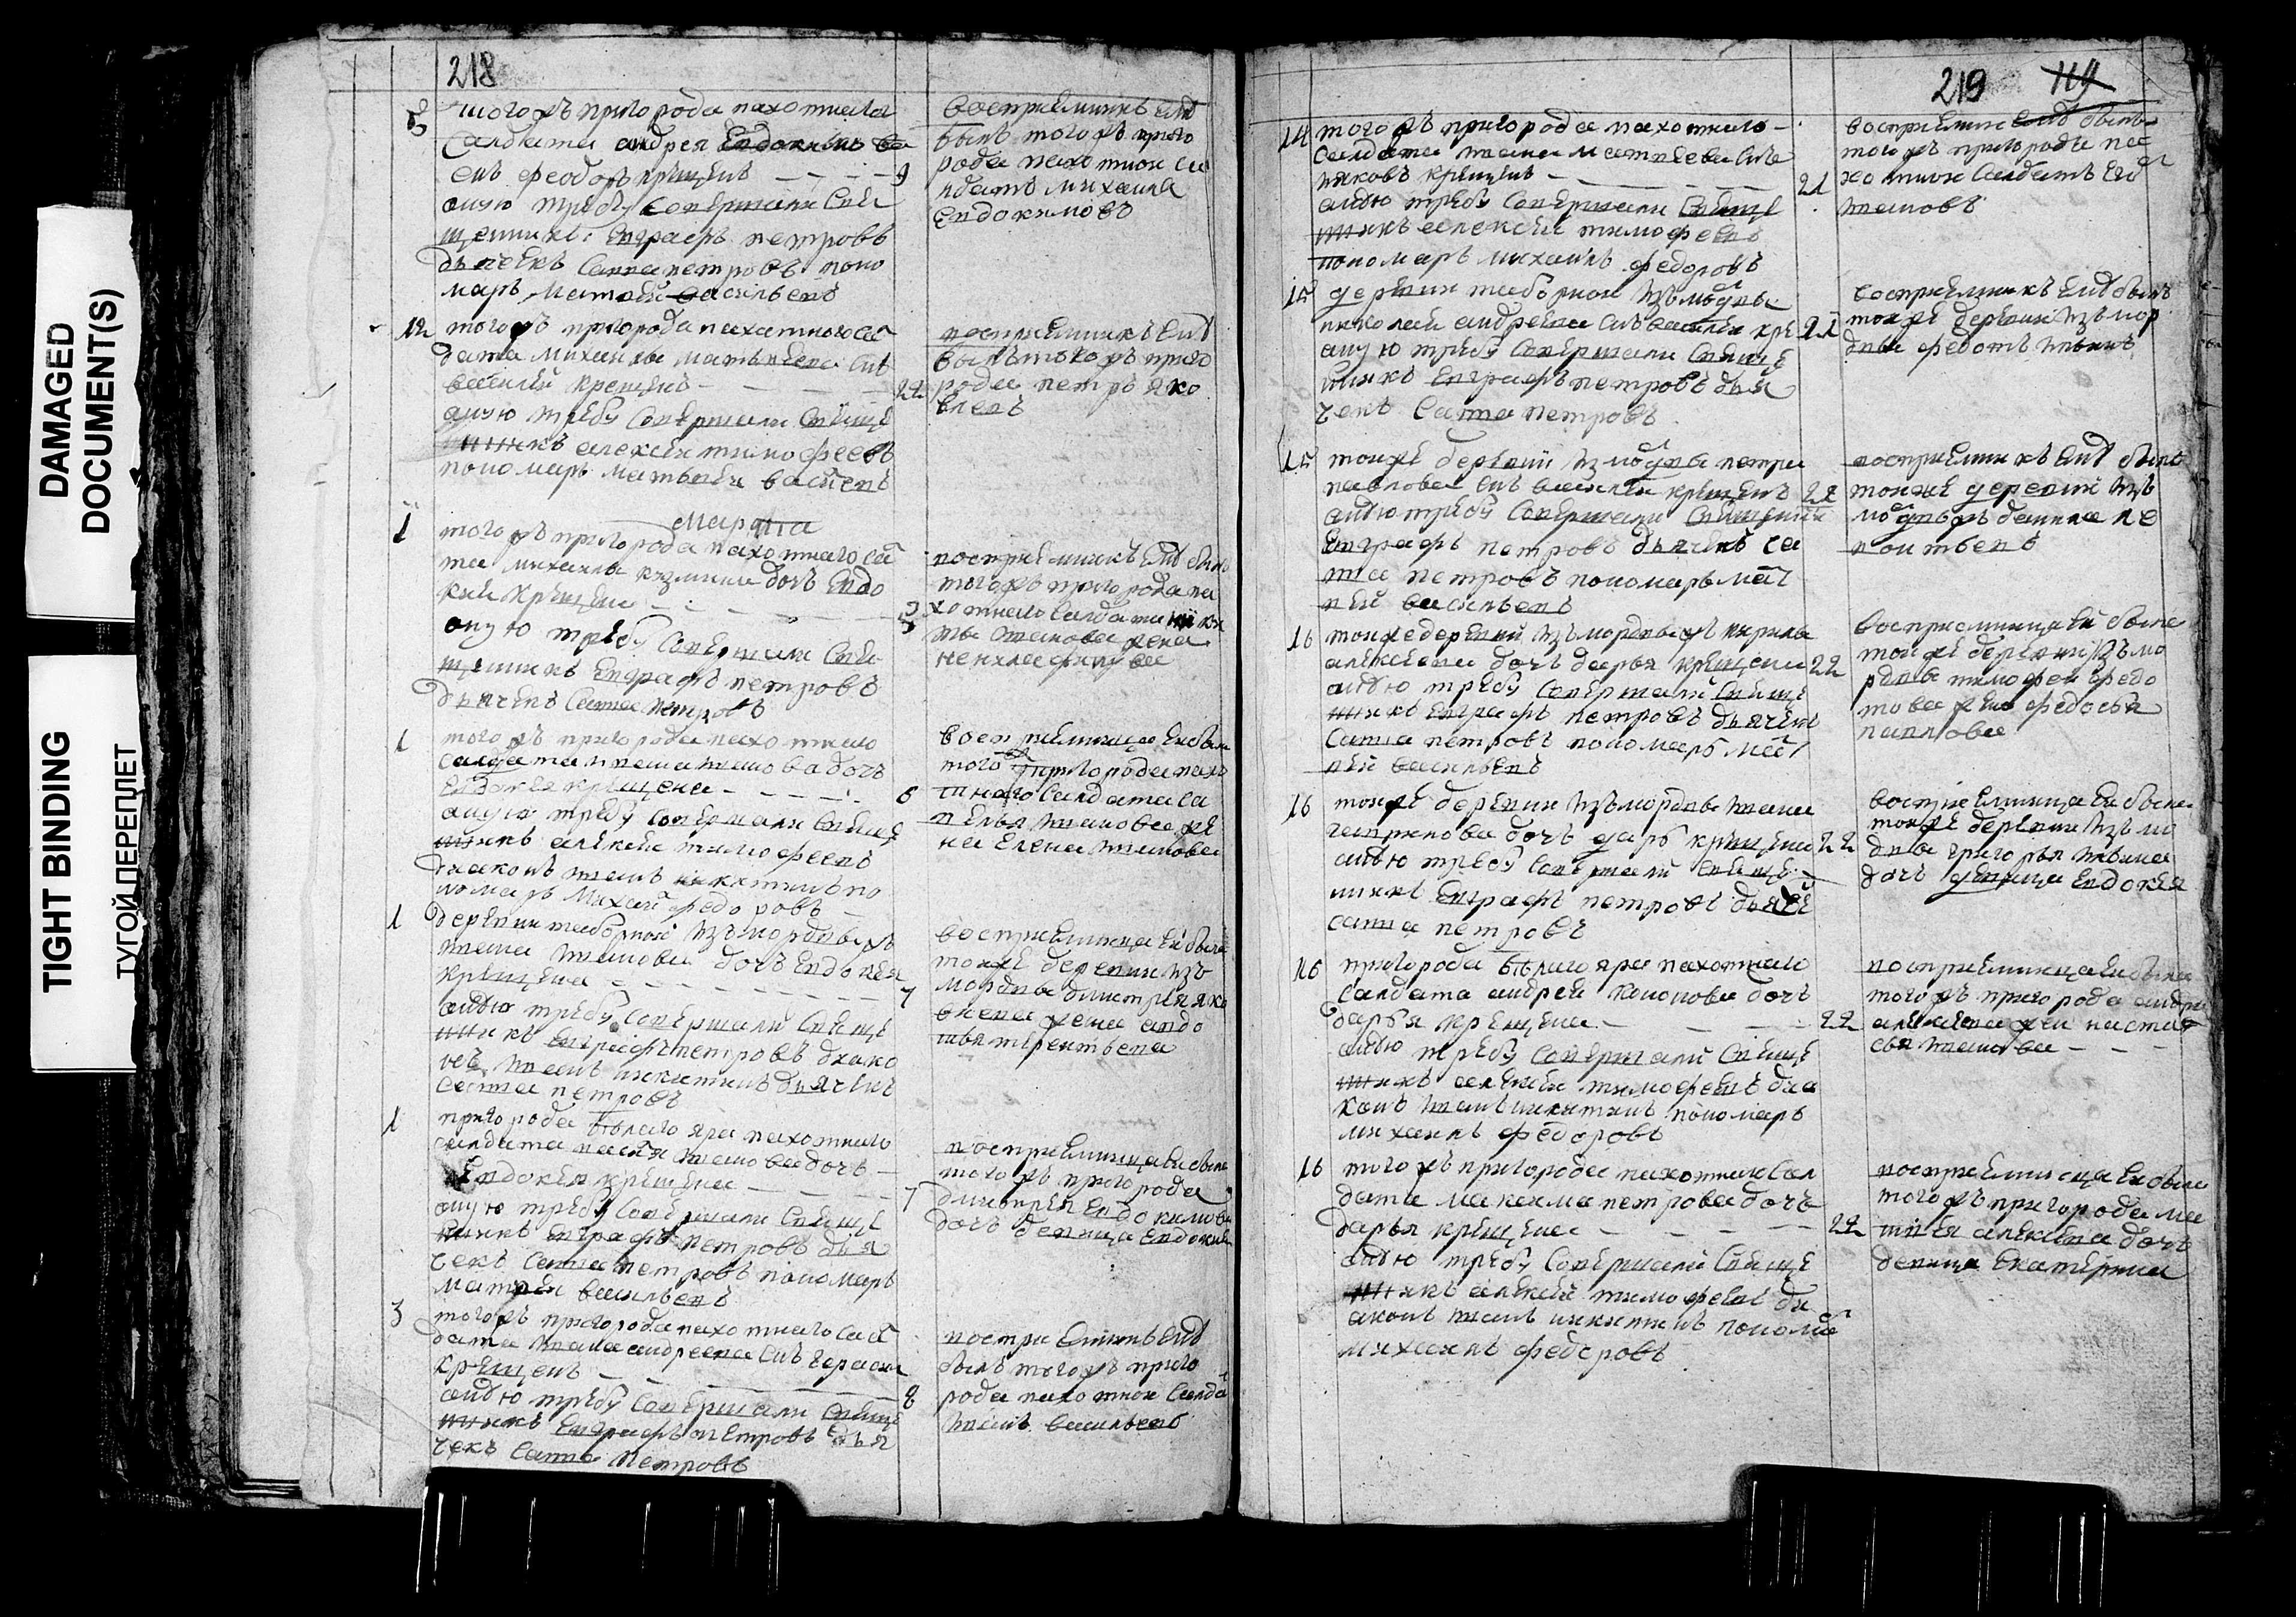 DAMAGED
DOCUMENT(S)
TIGHT BINDING
ТУГОЙ ПЕРЕПЛЕТ
218
того жъ пригорода пахотнаго
салдата андрея Евдокимова
снъ феодоръ крещенъ 9
оную требу совершали свя
щенникъ Евграфъ петровъ
дьячекъ Савва петровъ поно
марь Матвей васильевъ
восприемникъ ему
былъ того жъ приго
рода пахотнои са
лдатъ михаила
Евдокимовъ
12 того жъ пригорода пахатного сал
дата михаилы матвеева снъ
василей крещенъ 22
оную требу совершали свяще
нникъ алексеи тимофеевъ
пономарь матвеи васильевъ
восприемникъ ему
былъ того жъ приго
рода петръ яко
влевъ
марта
1 того жъ пригорода пахотнаго салда
та михаилы кузмина дочь Евдо
кия крещена 5
оную требу совершали свя
щенникъ Евграфъ петровъ
дьячекъ Савва петровъ
того жъ пригорода па
хотнаго салдата
1 того жъ пригорода пахотнаго
салдата ивана
Евдокея крещена 6
оную требу совершали свяще
нникъ алексеи тимофеевъ
диаконъ иванъ никитинъ по
номарь Михаил федоровъ
восприемница еи была
того жъ пригорода пахо
тнаго салдата са
велья иванова же
на Елена иванова
1 деревни таборнои изъ мордвы жъ
ивана иванова дочь Евдокея
крещена 7
оную требу совершали свяще
нникъ Евграфъ петровъ диако
нъ иванъ никитинъ дьячекъ
савва петровъ
восприемница еи была
тои же деревни изъ
мордвы дмитрея яко
влева жена авдо
тья терентьева
1 пригорода Белаго яра пахотнаго
салдата иванова дочь
Евдокея крещена 7
оную требу совершали свяще
нникъ Евграфъ петровъ дья
чекъ Савва петровъ пономарь
матвеи васильевъ
восприемница еи была
того жъ пригорода
дмитрея Евдокимова
дочь девица Евдокия
3 того жъ пригорода пахотнаго сал
дата ивана андреева снъ герасим
крещенъ 8
оную требу совершали свяще
нникъ Евграфъ петровъ дья
чекъ Савва петровъ
восприемникъ ему
былъ того жъ приго
рода пахотнои салда
иванъ васильевъ
219 119
14 того жъ пригорода пахотнаго
салдата ивана матвеева снъ
яковъ крещенъ 21
оную требу совершали свяще
нникъ алексеи тимофеевъ
пономарь михаилъ федоровъ
восприемник ему былъ
того жъ пригорода па
хотнои салдатъ
ивановъ
15 деревни таборнои изъ мордвы
николаи андреева снъ василеи кре 22
оную требу совершали свяще
нникъ Евграфъ петровъ дья
чекъ Савва петровъ
восприемникъ ему былъ
тои же деревни изъ мор
двы федотъ ивановъ
15 тои же деревни из мордвы петра
павлова снъ василеи крещенъ 22
оную требу совершали священник
Евграфъ петровъ дьячекъ са
вва петровъ пономарь мат
веи васильевъ
восприемникъ ему былъ
тои же деревни изъ
мордвы жъ данила ле
онтьевъ
16 тои же деревни изъ мордвы жъ кирила
алексеева дочь дарья крещена 22
оную требу совершали свяще
нникъ Евграфъ петровъ дьячекъ
Савва петровъ пономарь мат
веи васильевъ
восприемница еи была
тои же деревни изъ мо
рдвы тимофеи федо
това жена федосья
павлова
16 тои же деревни изъ мордвы ивана
гаврилова дочь дарья крещена 22
оную требу совершали свяще
нникъ Евграфъ петровъ дьяче
савва петровъ
восприемница еи была
тои же деревни изъ мо
двы григорья иванова
дочь девица Евдокея
16 пригорода Белаго яра пахотнаго
салдата андрея кононова дочь
дарья крещена 22
оную требу совершали свяще
нникъ алексеи тимофеевъ диа
конъ иванъ никитинъ пономарь
михаилъ федоровъ
восприемница еи была
того жъ пригорода андре
алексеева жена настас
сья иванова
16 того жъ пригорода пахотнаго сал
дата максима петрова дочь
дарья крещена 22
оную требу совершали свяще
нникъ алексеи тимофеевъ ди
аконъ иванъ никитинъ понома
михаилъ федоровъ
восприемница еи была
того жъ пригорода ма
твея алексеева дочь
девица Екатерина